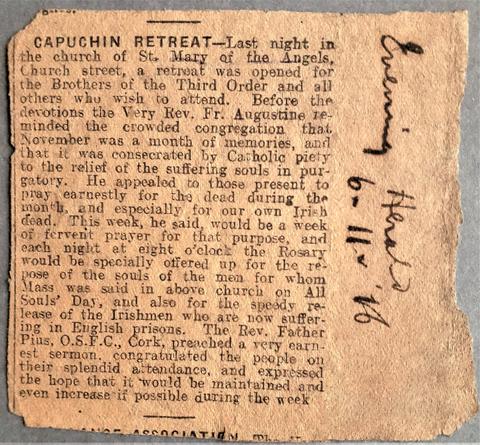 CAPUCHIN RETREAT—Last night in
the church of St. Mary of the Angels,
Church street, a retreat was opened for
the Brothers of the Third Order and all
others who wish to attend. Before the
devotions the Very Rev. Fr. Augustine re-
minded the crowded congregation that
November was a month of memories, and
that it was consecrated by Catholic piety
to the relief of the suffering souls in pur-
gatory. He appealed to those present to
pray earnestly for the dead during the
month, and especially for our own Irish
dead. This week, he said, would be a week
of fervent prayer for that purpose, and
each night at eight o'clock the Rosary
would be specially offered up for the re-
pose of the souls of the men for whom
Mass was said in above church on All
Souls' Day, and also for the speedy re-
lease of the Irishmen who are now suffer-
ing in English prisons. The Rev. Father
Pius, O.S.F.C., Cork, preached a very earn-
est sermon, congratulated the people on
their splendid attendance, and expressed
the hope that it would be maintained and
even increase if possible during the week
ANCE ASSOCIATION
Evening Herald
6-11-16